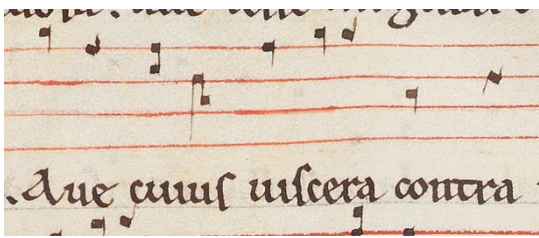 . Aue cuius uiscera contra